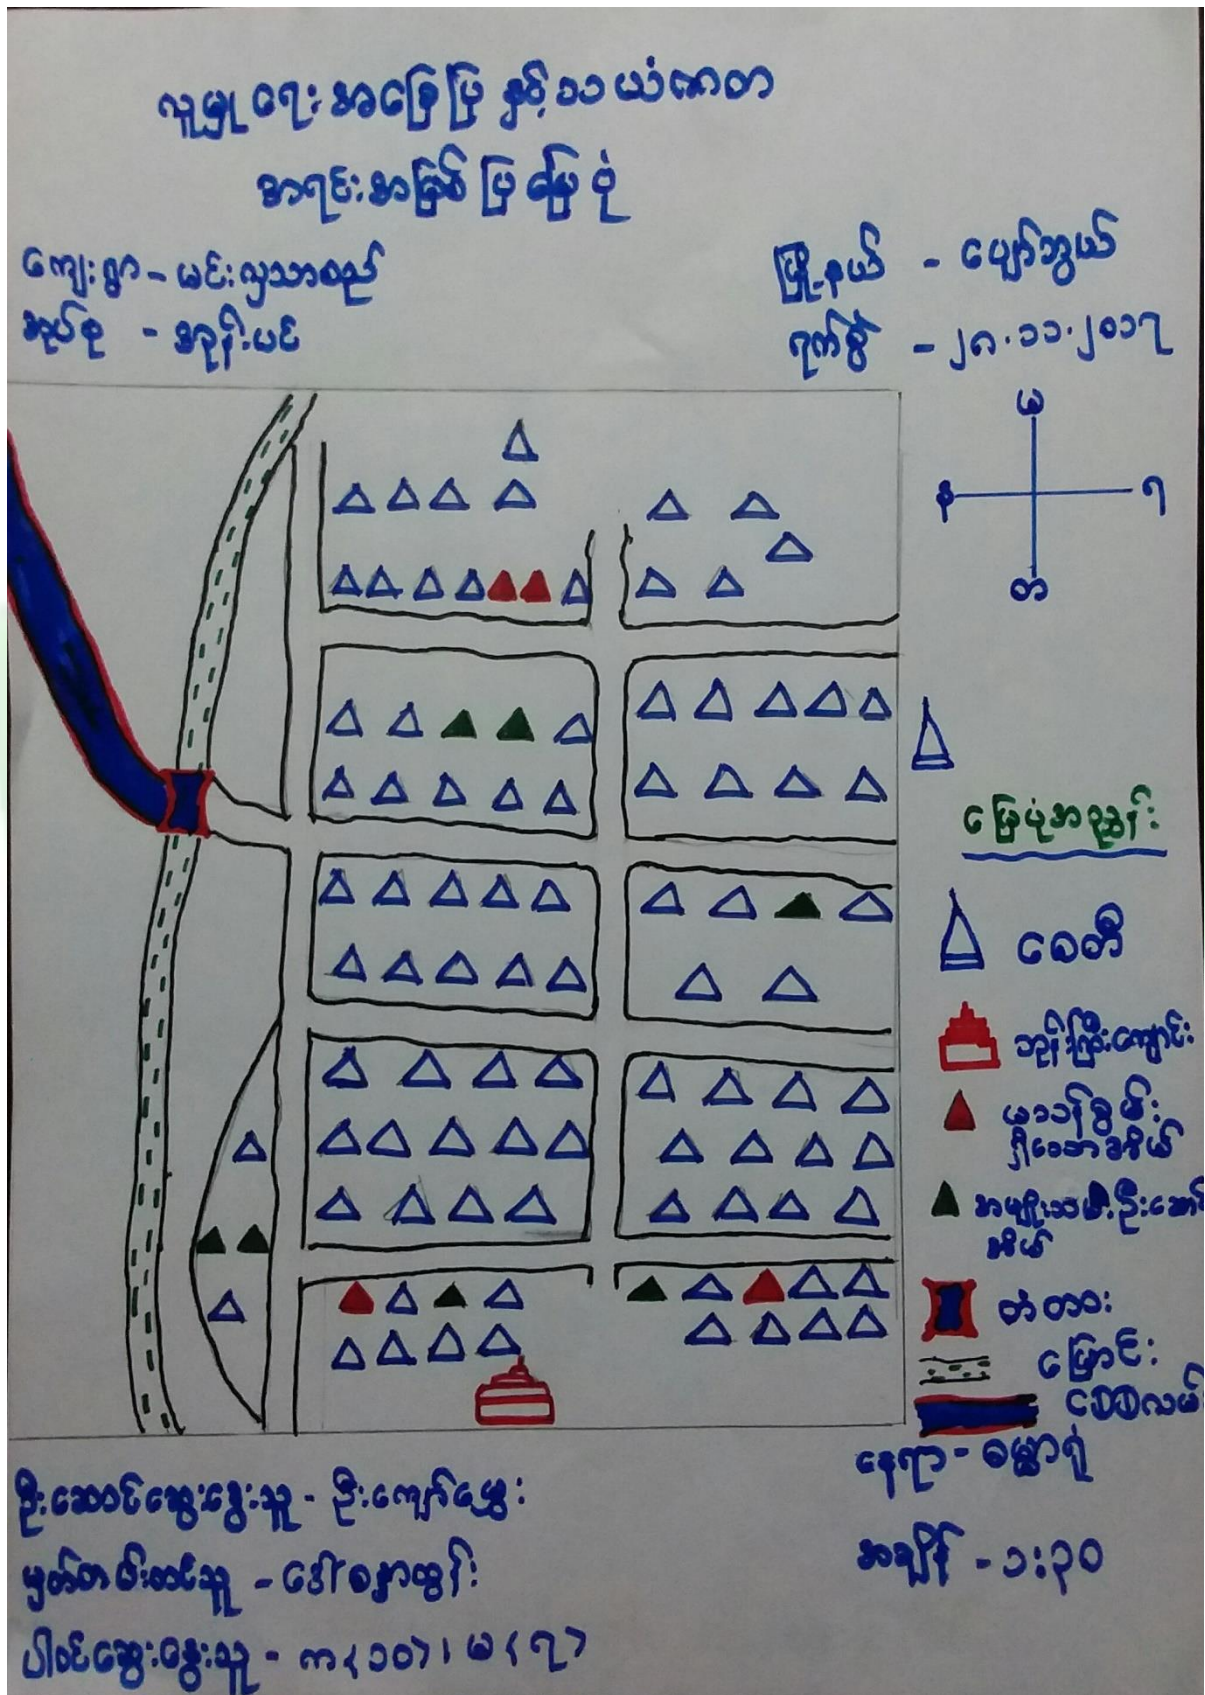 လူမှုရေးအခြေပြ နှင့် သယံဇာတ
အရင်းအမြစ်ပြ မြေပုံ
ကျေးရွာ - မင်းလှသာစည်
အုပ်စု - အုန်းပင်
မြို့နယ် - ပျော်ဘွယ်
ရက်စွဲ - ၂၈.၁၁.၂၀၁၇
မ
န
ရ
တ
မြေပုံအညွှန်း
စေတီ
ဘုန်းကြီးကျောင်း
မသန်စွမ်း
ရှိသောအိမ်
အမျိုးသမီးဦးဆောင်
အိမ်
တံတား
မြောင်း
လမ်း
နေရာ - ဓမ္မာရုံ
အချိန် - ၁:၃၀
ဦးဆောင်ဆွေးနွေးသူ - ဦးကျော်မွှေး
မှတ်တမ်းတင်သူ - ဒေါ်စန္ဒာထွန်း
ပါဝင်ဆွေးနွေးသူ - က (၁၀) ၊ မ (၇)